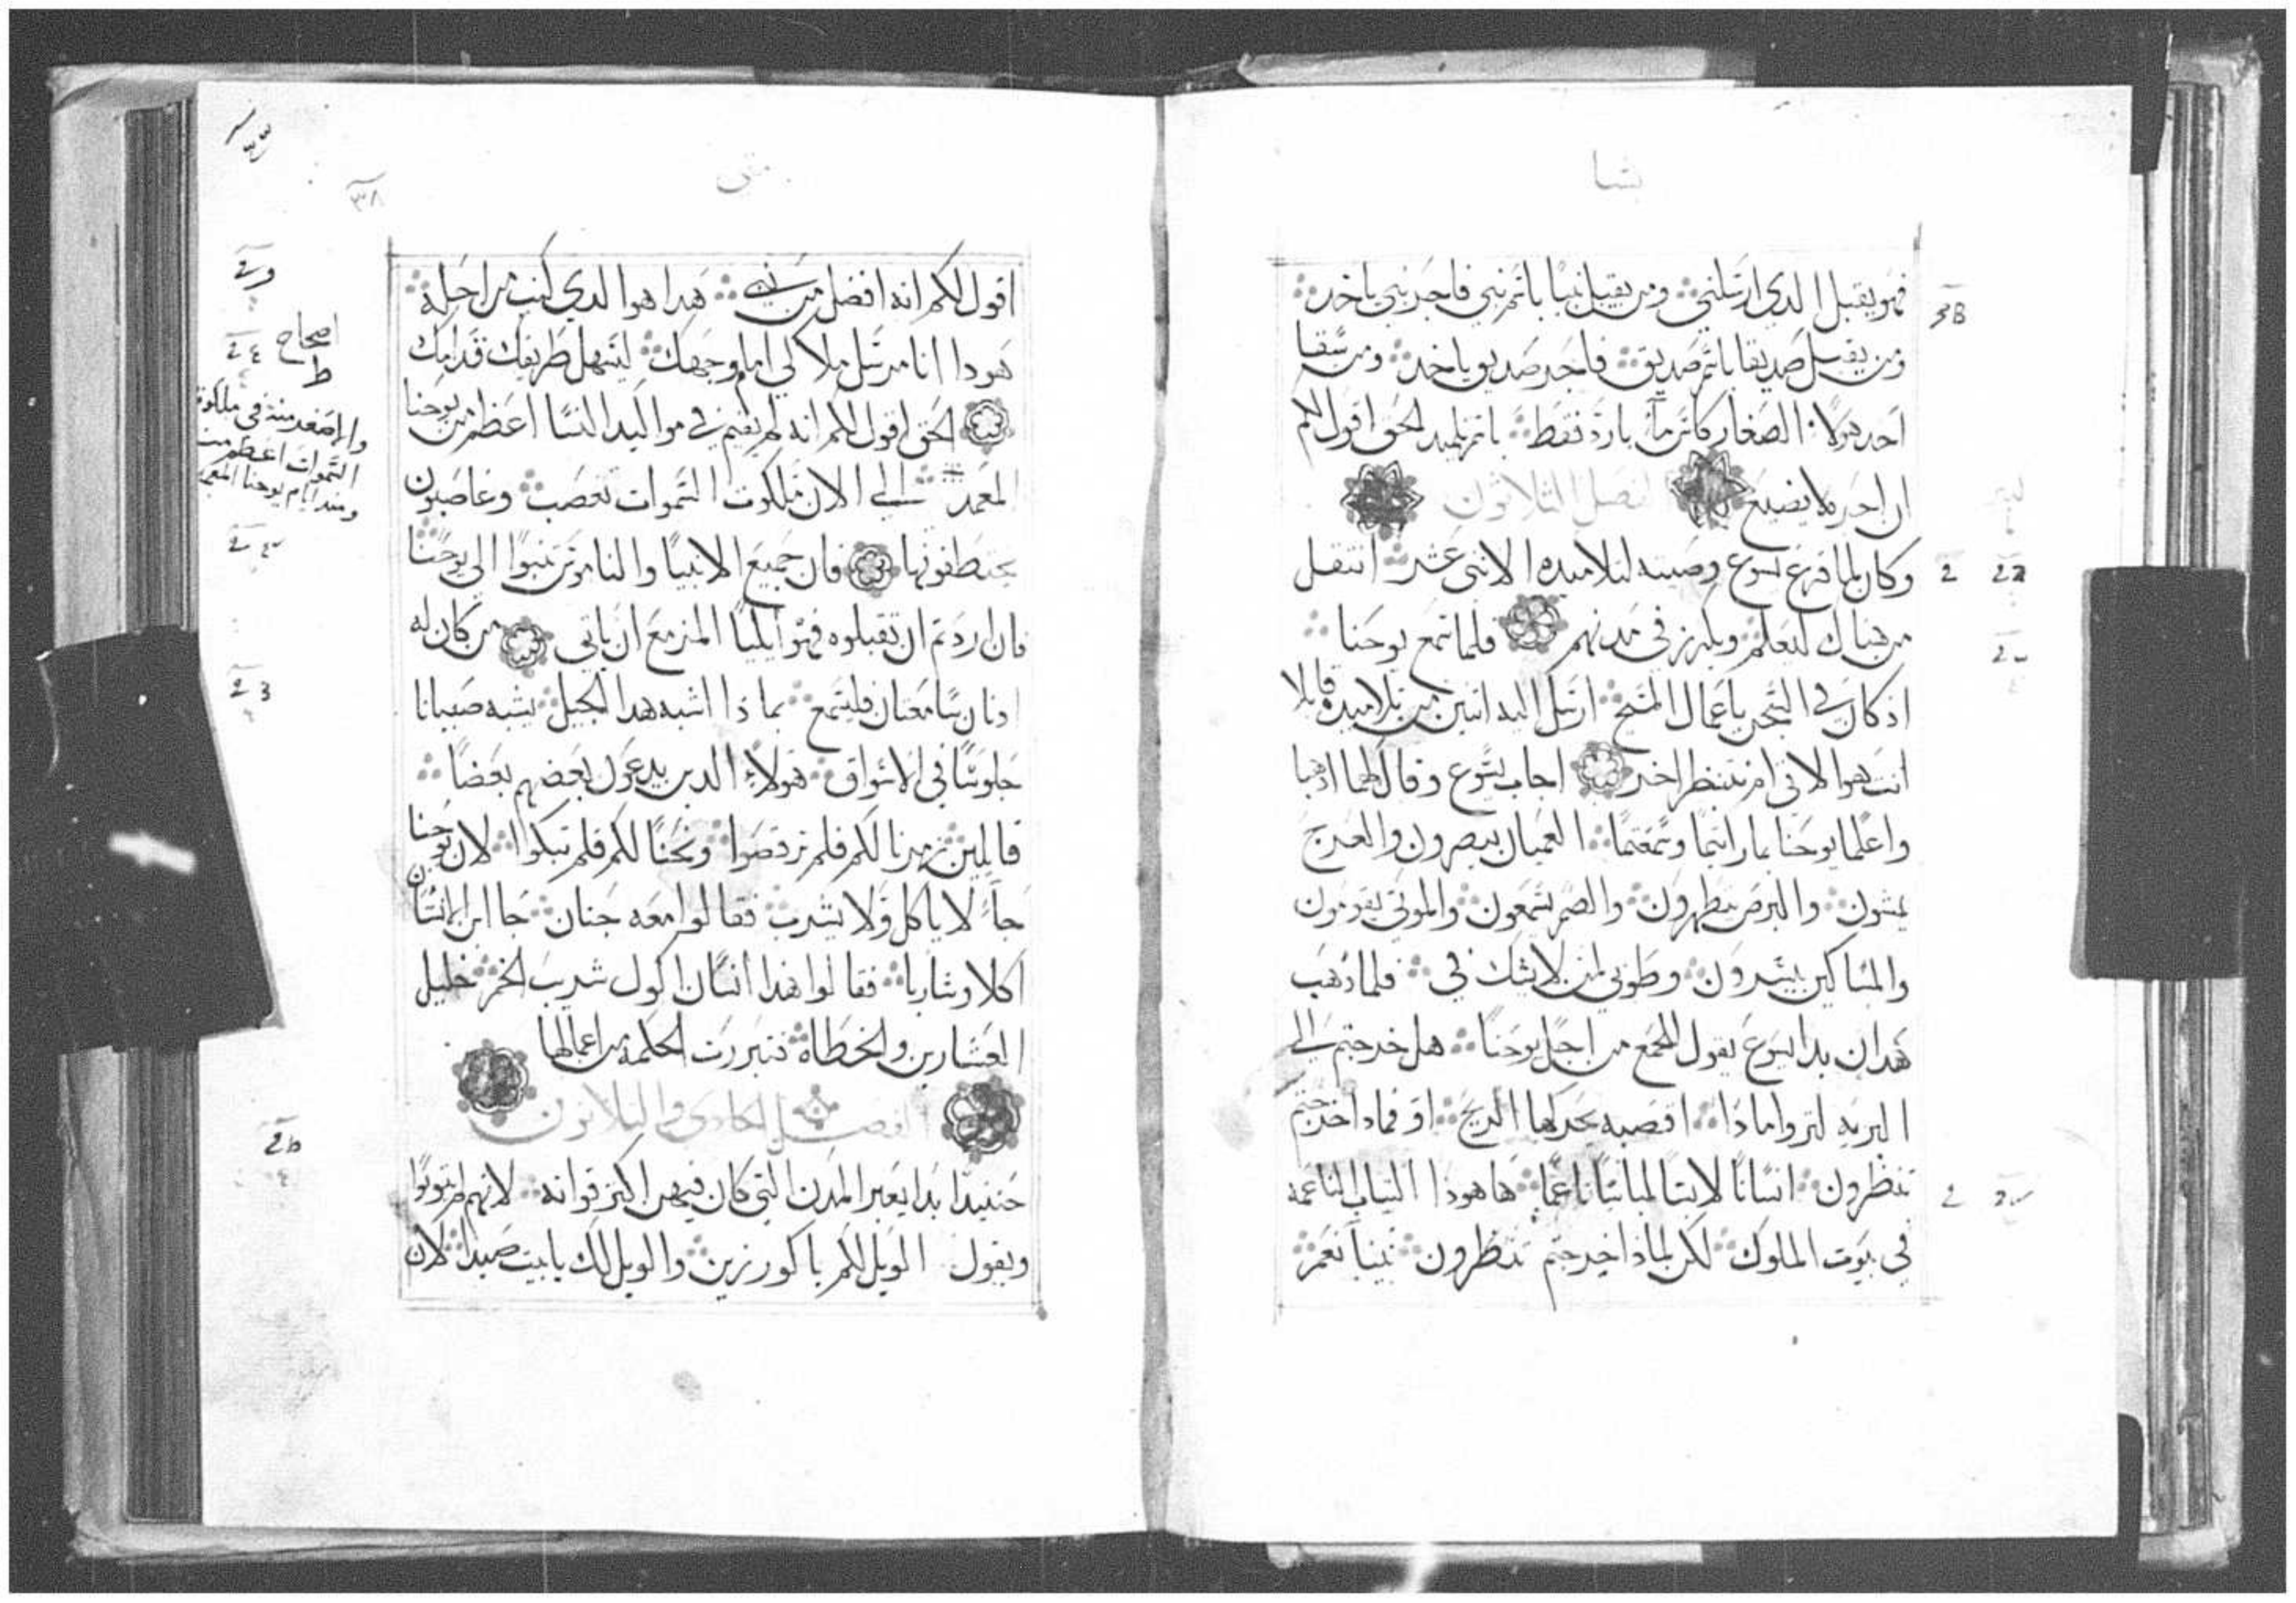 بشا
فهو يقبل الدي ارسلني ومن يقبل نبيًا باسم نبي فاجر نبي ياخد
ومن يقبل صديقا باسم صديق فاجر صديق ياخد ومن سقا
احد هولا الصغار كاس ماء بارد فقط باسم تلميد الحق اقول لكم
ان اجره لا يضيع الفصل الثلاثون
وكان لما فرغ يسوع وصيته لتلاميده الاثنى عشر انتقل
من هناك ليعلم ويكرز في مدنهم فلما سمع يوحنا
اذ كان في السجن باعمال المسيح ارسل اليه اثنين من تلاميده قايلا
انت هوا الاتي ام ننتظر اخر اجاب يسوع وقال لهما ادهبا
واعلما يوحنا بما رايتما وسمعتما العميان يبصرون والعرج
يمشون والبرص يتطهرون والصم يسمعون والموتى يقومون
والمساكين يبشرون وطوبى لمن لا يشك في فلما دهب
هدان بدا يسوع يقول للجمع من اجل يوحنا هل خرجتم الى
البريه لتروا ماذا اقصبه يحركها الريح او فماذا خرجتم
تنظرون انسانًا لابسًا لباسًا ناعمًا ها هوذا الثياب الناعمه
في بيوت الملوك لكن لماذا خرجتم تنظرون نبيًا نعم
متى
٣٨
اقول لكم انه افضل من نبي هدا هوا الدي كتب من اجله
هودا انا مرسل ملاكي امام وجهك ليسهل طريقك قدامك
الحق اقول لكم انه لم يقم في مواليد النسا اعظم من يوحنا
المعمد الى الان ملكوت السموات تغصب وغاصبون
يختطفونها فان جميع الانبيا والناموس تنبوا الى يوحنا
فان اردتم ان تقبلوه فهو ايليا المزمع ان ياتي من كان له
ادنان سامعتان فليسمع بماذا اشبه هدا الجيل يشبه صبيانا
جلوسًا في الاسواق هولاء الدين يدعون بعضهم بعضًا
قايلين زمرنا لكم فلم ترقصوا ونحنا لكم فلم تبكوا لان يوحنا
جاء لا ياكل ولا يشرب فقالوا معه جنان جا ابن الانسان
اكلا وشاربا فقالوا هدا انسان اكول شريب الخمر خليل
العشارين والخطاة فتبررت الحكمة من اعمالها
الفصل الحادي والثلاثون
حنيندا بدا يعير المدن التي كان فيهن اكثر قواته لانهم لم يتوبوا
ويقول الويل لكم يا كورزين والويل لك يا بيت صيدا لان
اصحاح
ط
والاصغر منه في ملكوت
السموات اعظم منه
ومند ايام يوحنا المعمد